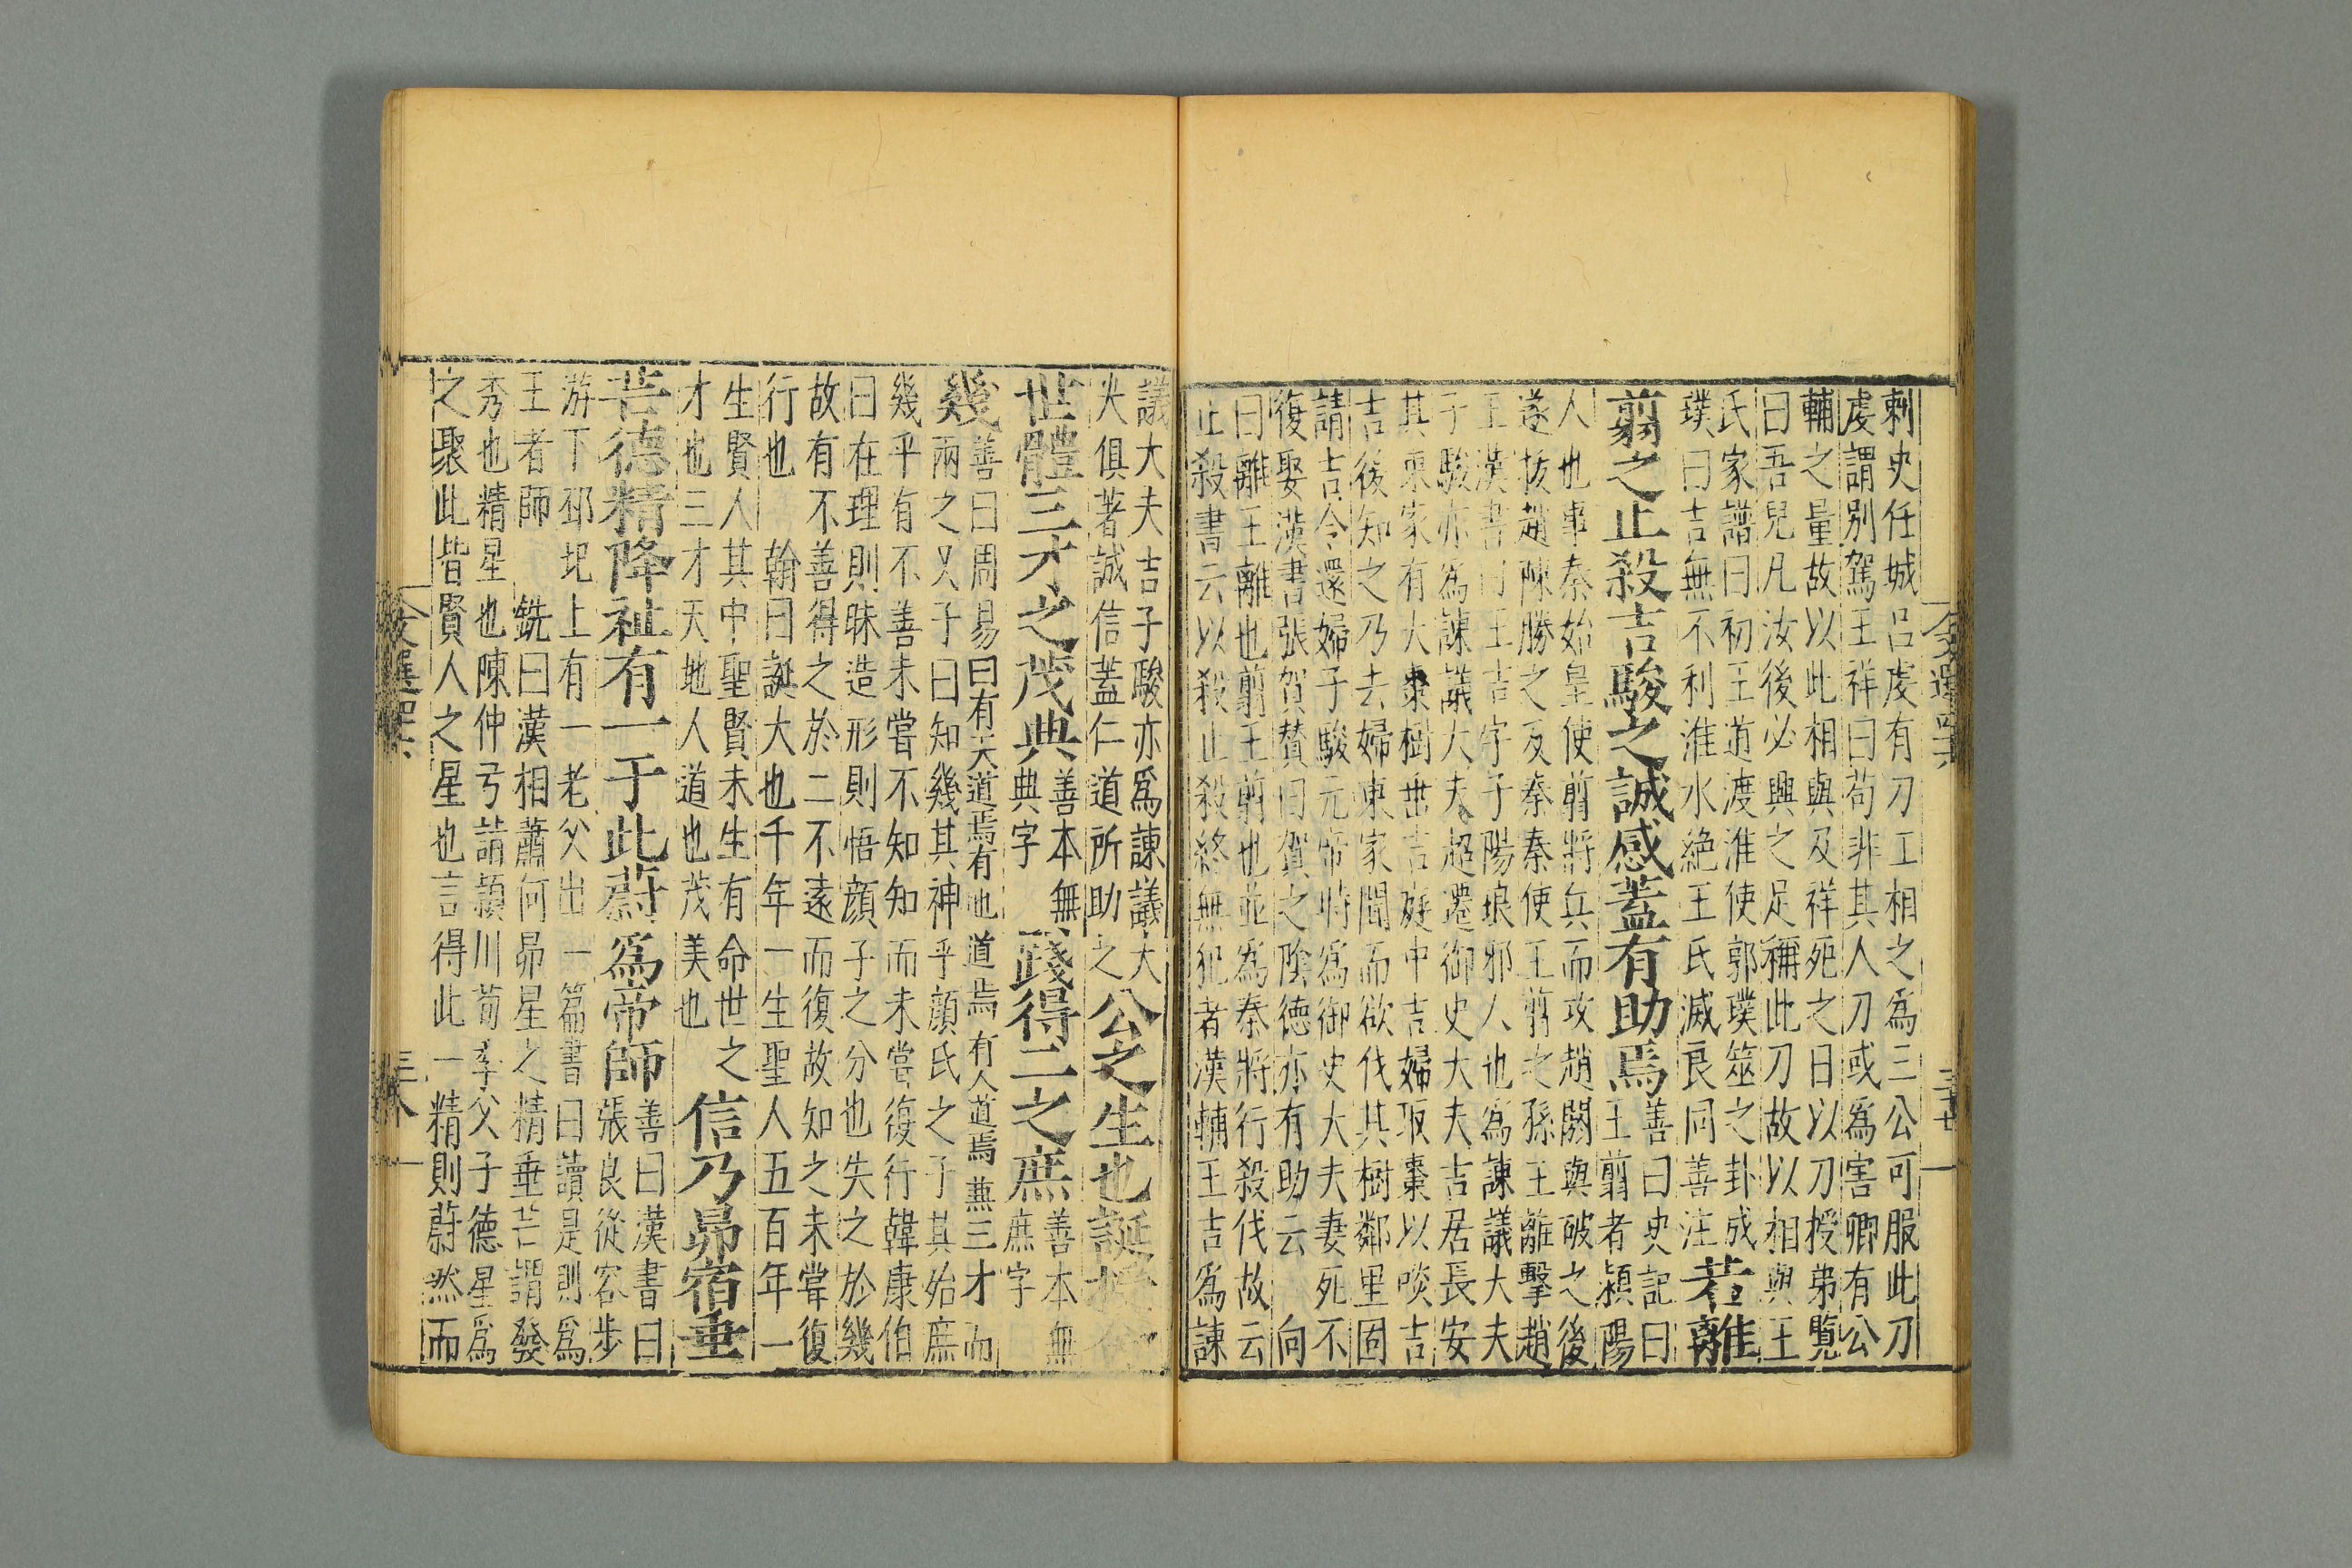 刺史任城呂虔有刀工相之爲三公可服此刀
虔謂別駕王祥曰苟非其人刀或爲害卿有公
輔之量故以此相與及祥死之日以刀授弟覽
曰吾兒凡汝後必興之足稱此刀故以相與王
氏家譜曰初王道渡淮使郭璞筮之卦成
璞曰吉無不利淮水絶王氏滅良同善注
若離
翦之止殺吉駿之誠感蓋有助焉
善曰史記曰
王翦者潁陽
人也事秦始皇使翦將兵而攻趙閼與破之後
遂拔趙陳勝之反秦秦使王翦之孫王離擊趙
王漢書曰王吉字子陽琅邪人也爲諫議大夫
子駿亦爲諫議大夫超遷御史大夫吉居長安
其東家有大棗樹垂吉庭中吉婦取棗以啖吉
吉後知之乃去婦東家聞而欲伐其樹鄰里固
請吉令還婦子駿元帝時爲御史大夫妻死不
復娶漢書張賀贊曰賀之陰德亦有助云 向
曰離王離也翦王翦也並爲秦將行殺伐故云
止殺書云以殺止殺終無犯者漢輔王吉爲諫
議大夫吉子駿亦爲諫議大
夫俱著誠信蓋仁道所助之
公之生也誕授命
世體三才之茂典
善本無
典字
踐得二之庶
善本無
庶字
幾
善曰周易曰有天道焉有地道焉有人道焉兼三才而
兩之又子曰知幾其神乎顔氏之子其殆庶
幾乎有不善未嘗不知知而未嘗復行韓康伯
曰在理則昧造形則悟顔子之分也失之於幾
故有不善得之於二不遠而復故知之未嘗復
行也 翰曰誕大也千年一生聖人五百年一
生賢人其中聖賢未生有命世之
才也三才天地人道也茂美也
信乃昴宿垂
芒德精降祉有一于此蔚爲帝師
善曰漢書曰
張良從容步
游下邳圯上有一老父出一篇書曰讀是則爲
王者師 銑曰漢相蕭何昴星之精垂芒謂發
秀也精星也陳仲弓詣潁川荀季父子德星爲
之聚此皆賢人之星也言得此一精則蔚然而